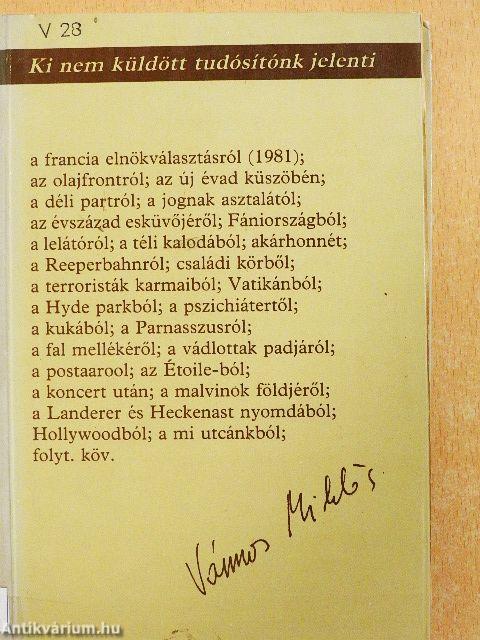 V 28
Ki nem küldött tudósítónk jelenti
a francia elnökválasztásról (1981);
az olajfrontról; az új évad küszöbén;
a déli partról; a jognak asztalától;
az évszázad esküvőjéről; Fániországból;
a lelátóról; a téli kalodából; akárhonnét;
a Reeperbahnról; családi körből;
a terroristák karmaiból; Vatikánból;
a Hyde parkból; a pszichiátertől;
a kukából; a Parnasszusról;
a fal mellékéről; a vádlottak padjáról;
a postaarool; az Étoile-ból;
a koncert után; a malvinok földjéről;
a Landerer és Heckenast nyomdából;
Hollywoodból; a mi utcánkból;
folyt. köv.
Vámos Miklós
Antikvárium.hu